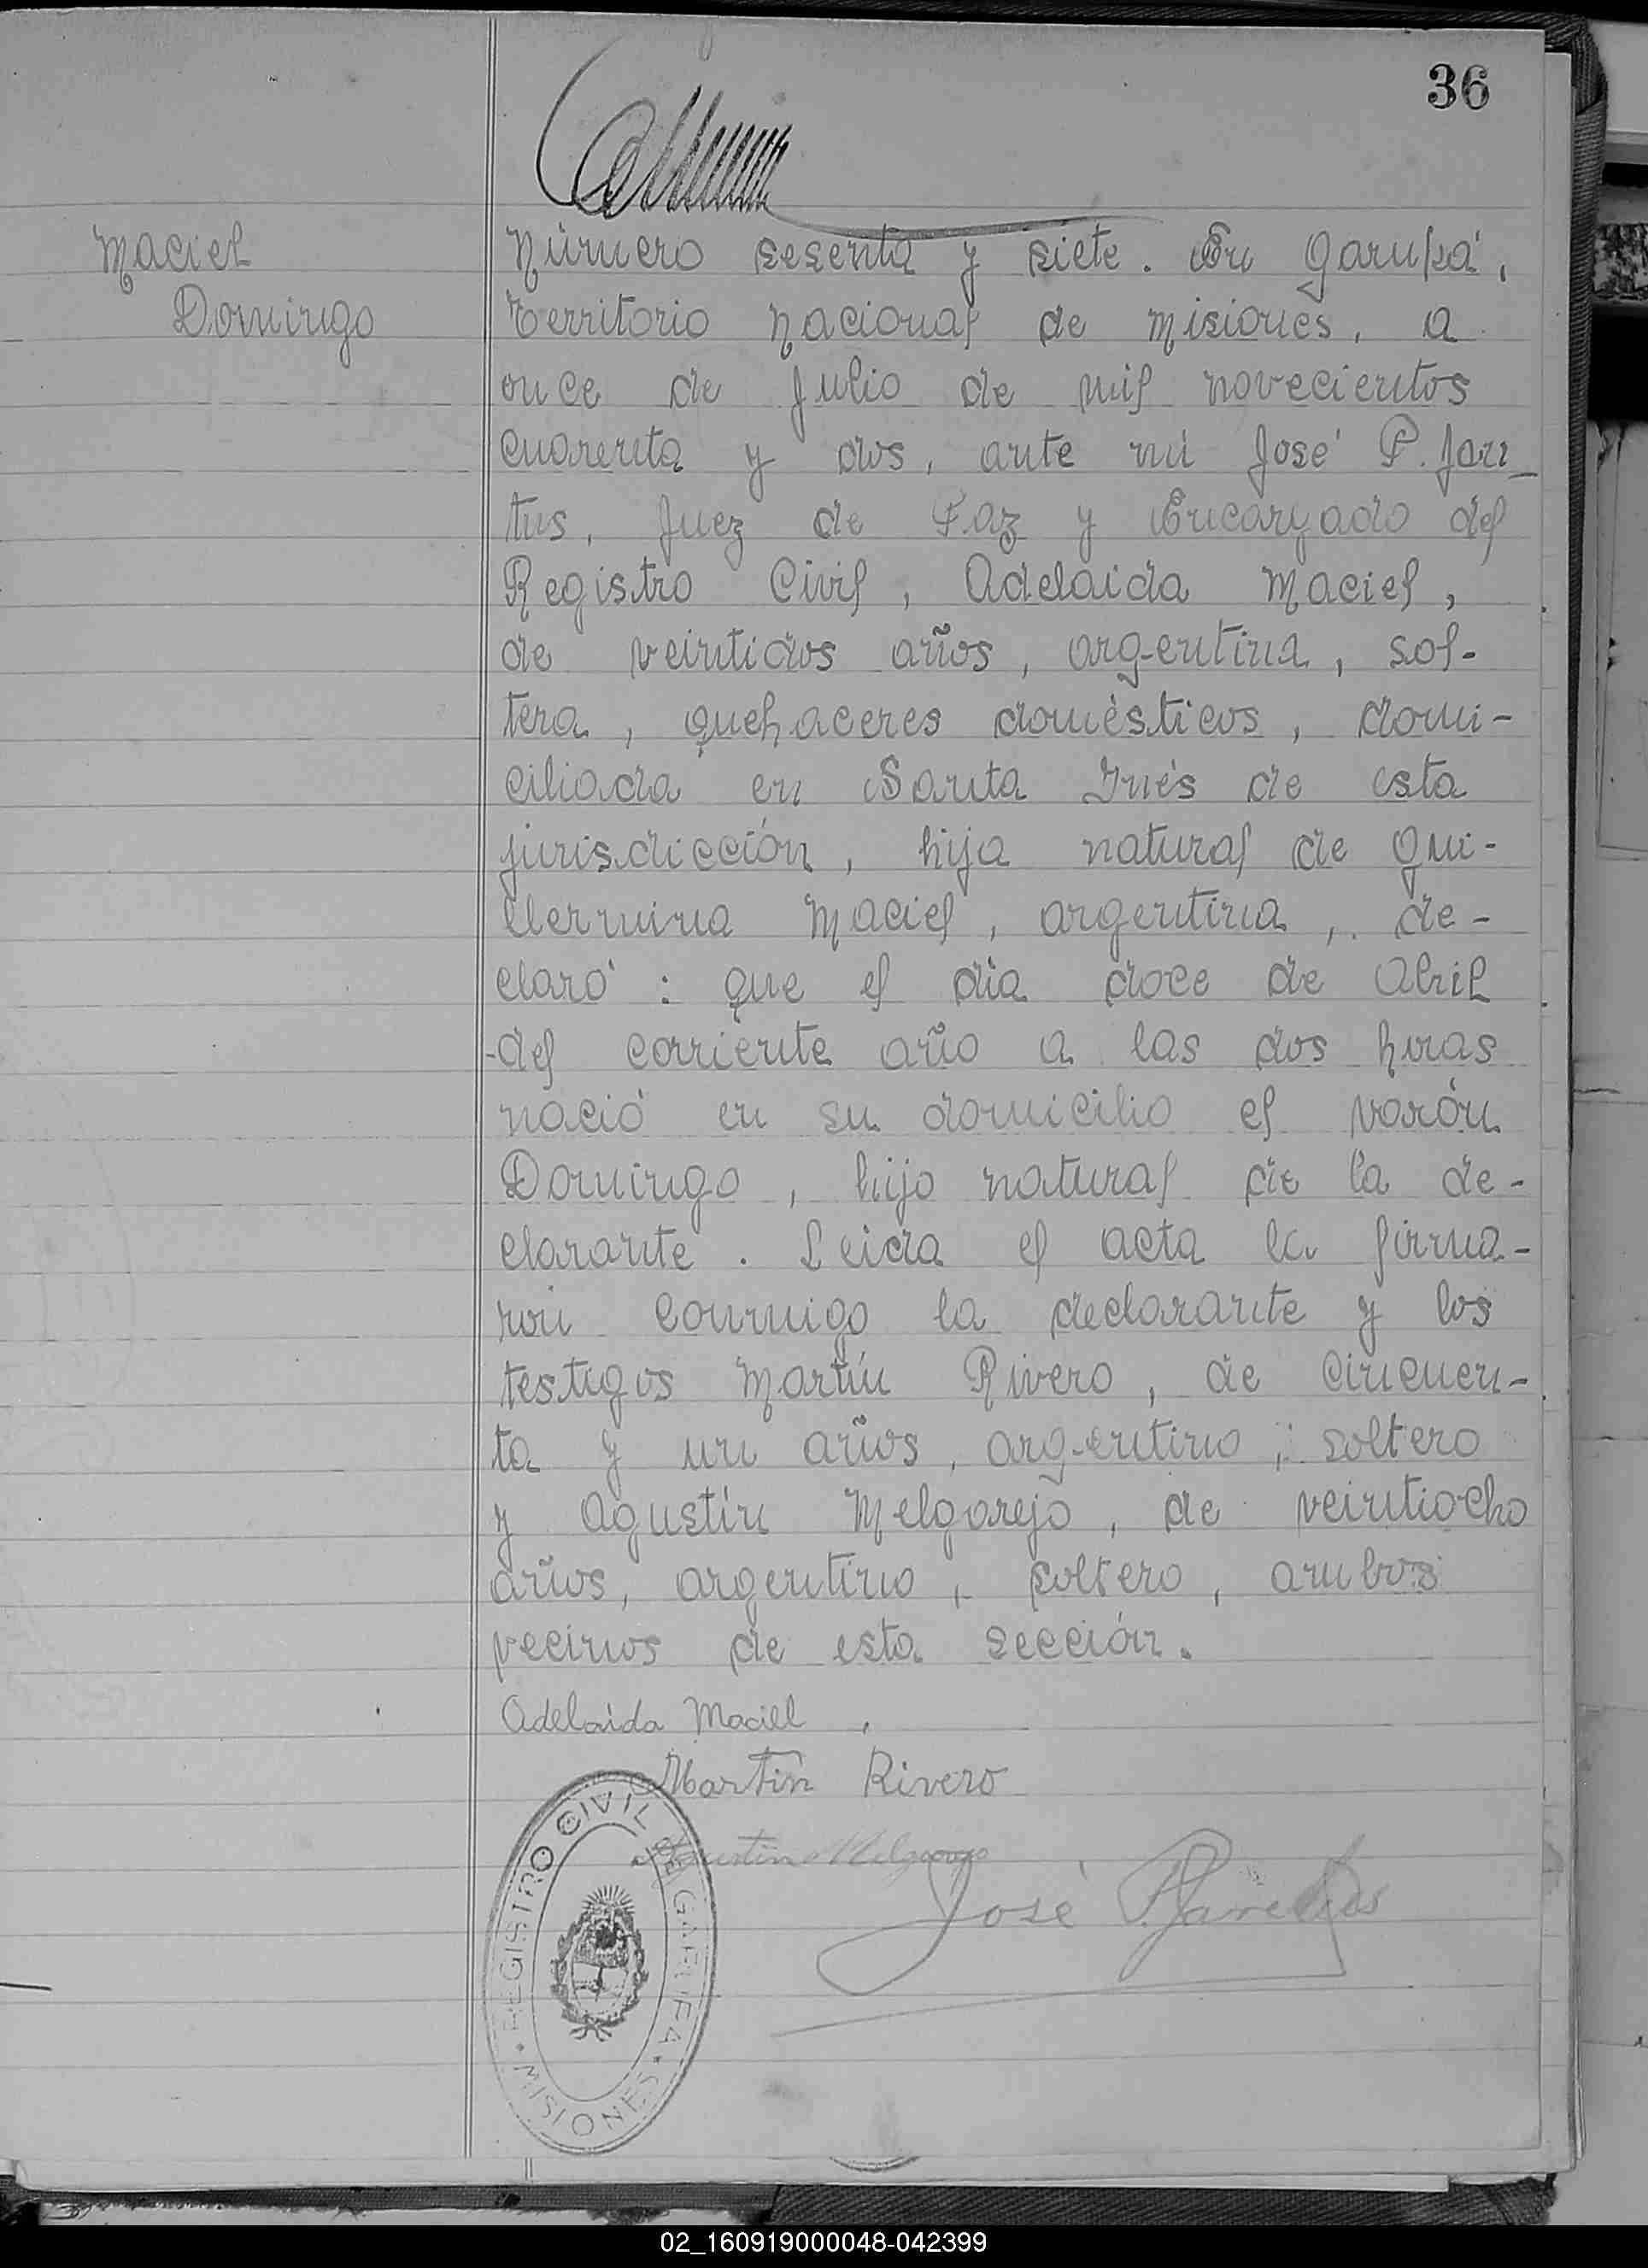 36
Maciel
Domingo
Número sesenta y siete. En Garupá,
Territorio Nacional de Misiones, a
once de Julio de mil novecientos
cuarenta y dos, ante mi José P.
tus, Juez de Paz y Encargado del
Registro Civil, Adelaida Maciel,
de veintidos años, argentina, sol-
tera, quehaceres domésticos, domi-
ciliada en Santa Inés de esta
jurisdicción, hija natural de Gui-
llermina Maciel, argentina, de-
claró: que el dia doce de Abril
del corriente año a las dos horas
nació en su domicilio el varón
Domingo, hijo natural de la de-
clarante. Leida el acta la firma-
ron conmigo la declarante y los
testigos Martín Rivero, de cincuen-
ta y un años, argentino, soltero
y Agustín Melgarejo, de veintiocho
años, argentino, soltero, ambos
vecinos de esta sección.
Adelaida Maciel
Martín Rivero
Agustin Melgarejo
José P.
REGISTRO CIVIL DE GARUPA
MISIONES
02_160919000048-042399